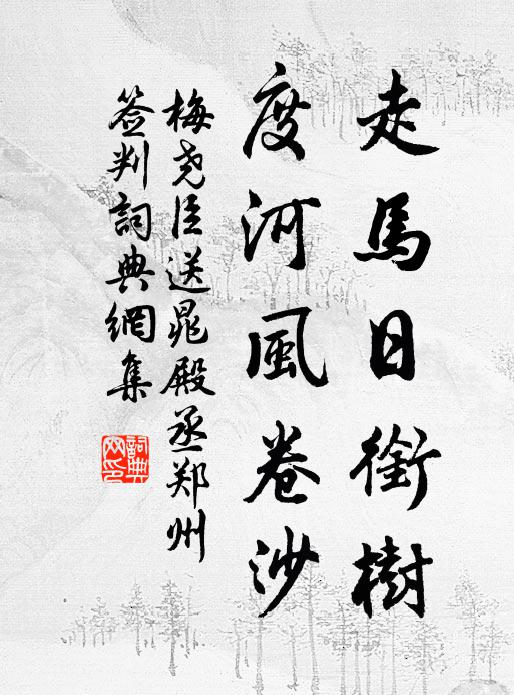 走馬日銜樹
度河風卷沙
梅尧臣送晁殿丞郑州
签判詞典網集
詞典
网印